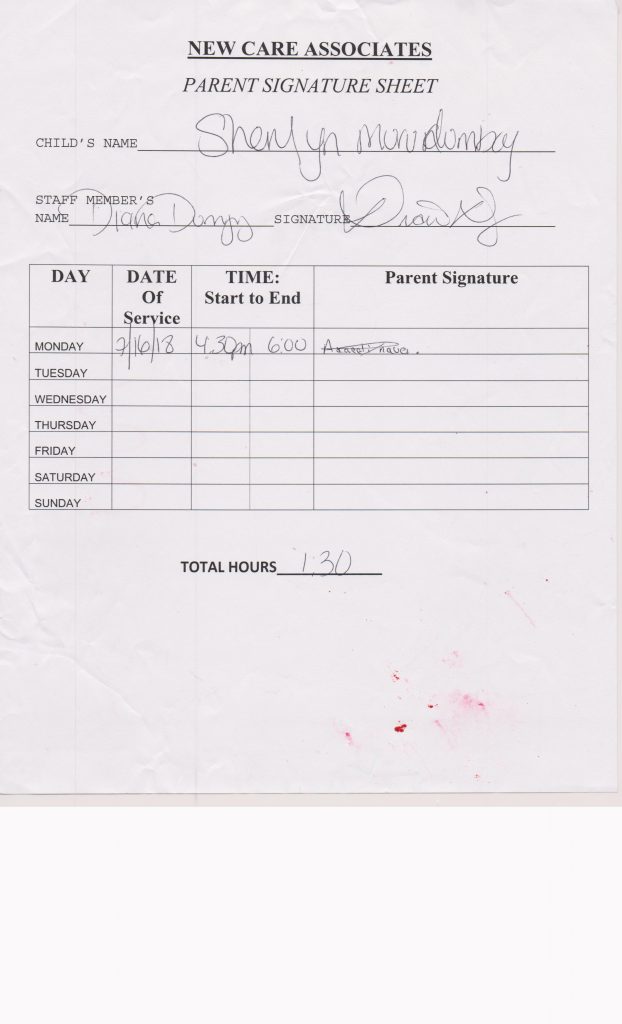 NEW CARE ASSOCIATES
PARENT SIGNATURE SHEET
CHILD'S NAME Sherlyn
STAFF MEMBER'S
NAME Diana SIGNATURE
DAY DATE Of Service TIME: Start to End Parent Signature
MONDAY 7/16/18 4:30pm 6:00
TUESDAY
WEDNESDAY
THURSDAY
FRIDAY
SATURDAY
SUNDAY
TOTAL HOURS 1.30